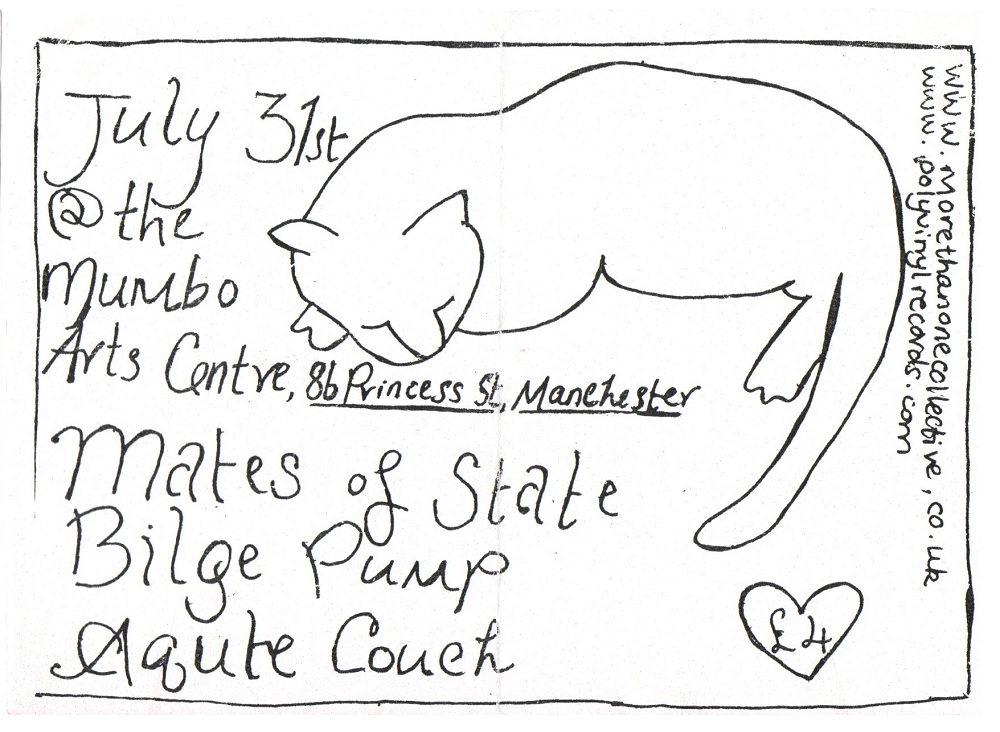 July 31st
@ the
Mumbo
Arts Centre, 86 Princess St, Manchester
Mates of State
Bilge Pump
Aqute Couch
£4
www.morethanonecollective.co.uk
www.polyvinylrecords.com